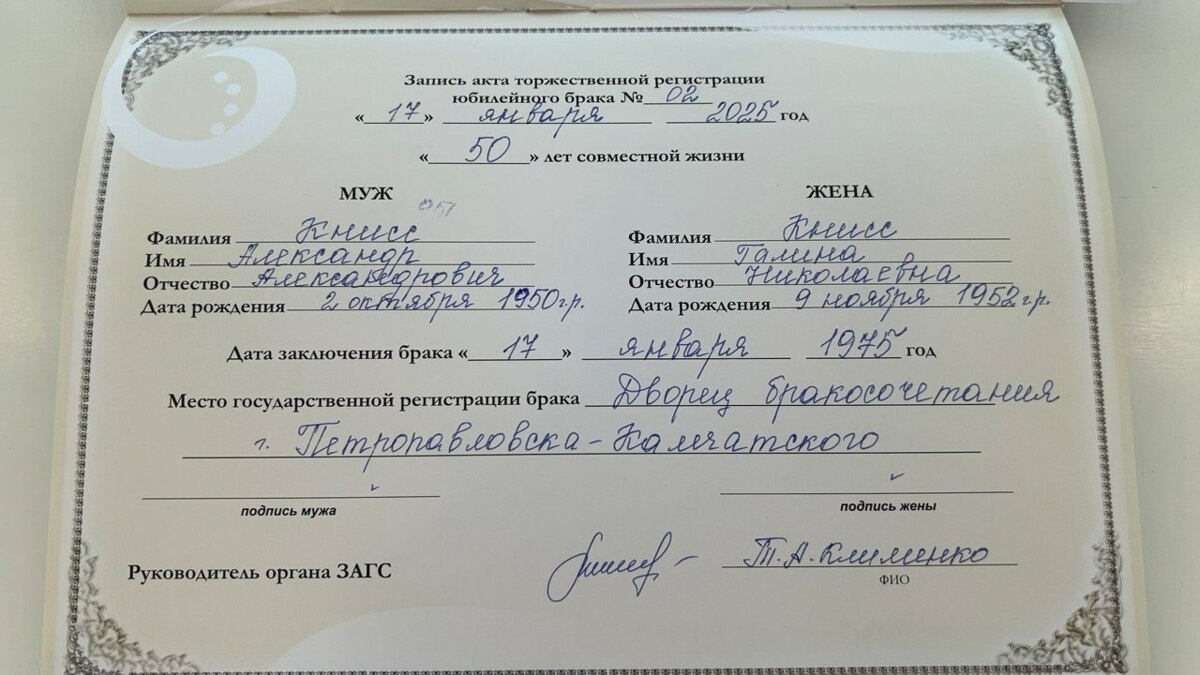 Запись акта торжественной регистрации
юбилейного брака № 02
« 17 » января 2025 год
« 50 » лет совместной жизни
МУЖ ЖЕНА
Фамилия Книсс Фамилия Книсс
Имя Александр Имя Галина
Отчество Александрович Отчество Николаевна
Дата рождения 2 октября 1950 г.р. Дата рождения 9 ноября 1952 г.р.
Дата заключения брака « 17 » января 1975 год
Место государственной регистрации брака Дворец бракосочетания
г. Петропавловска-Камчатского
подпись мужа подпись жены
Руководитель органа ЗАГС Т.А.Клименко
ФИО